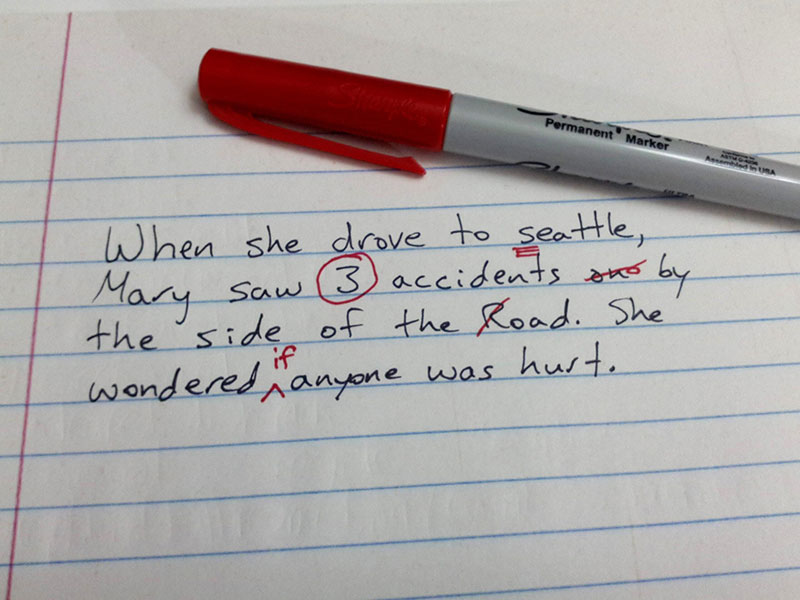 Sharpie
Permanent Marker
Assembled in USA
When she drove to seattle,
Mary saw 3 accidents on by
the side of the Road. She
if
wondered anyone was hurt.